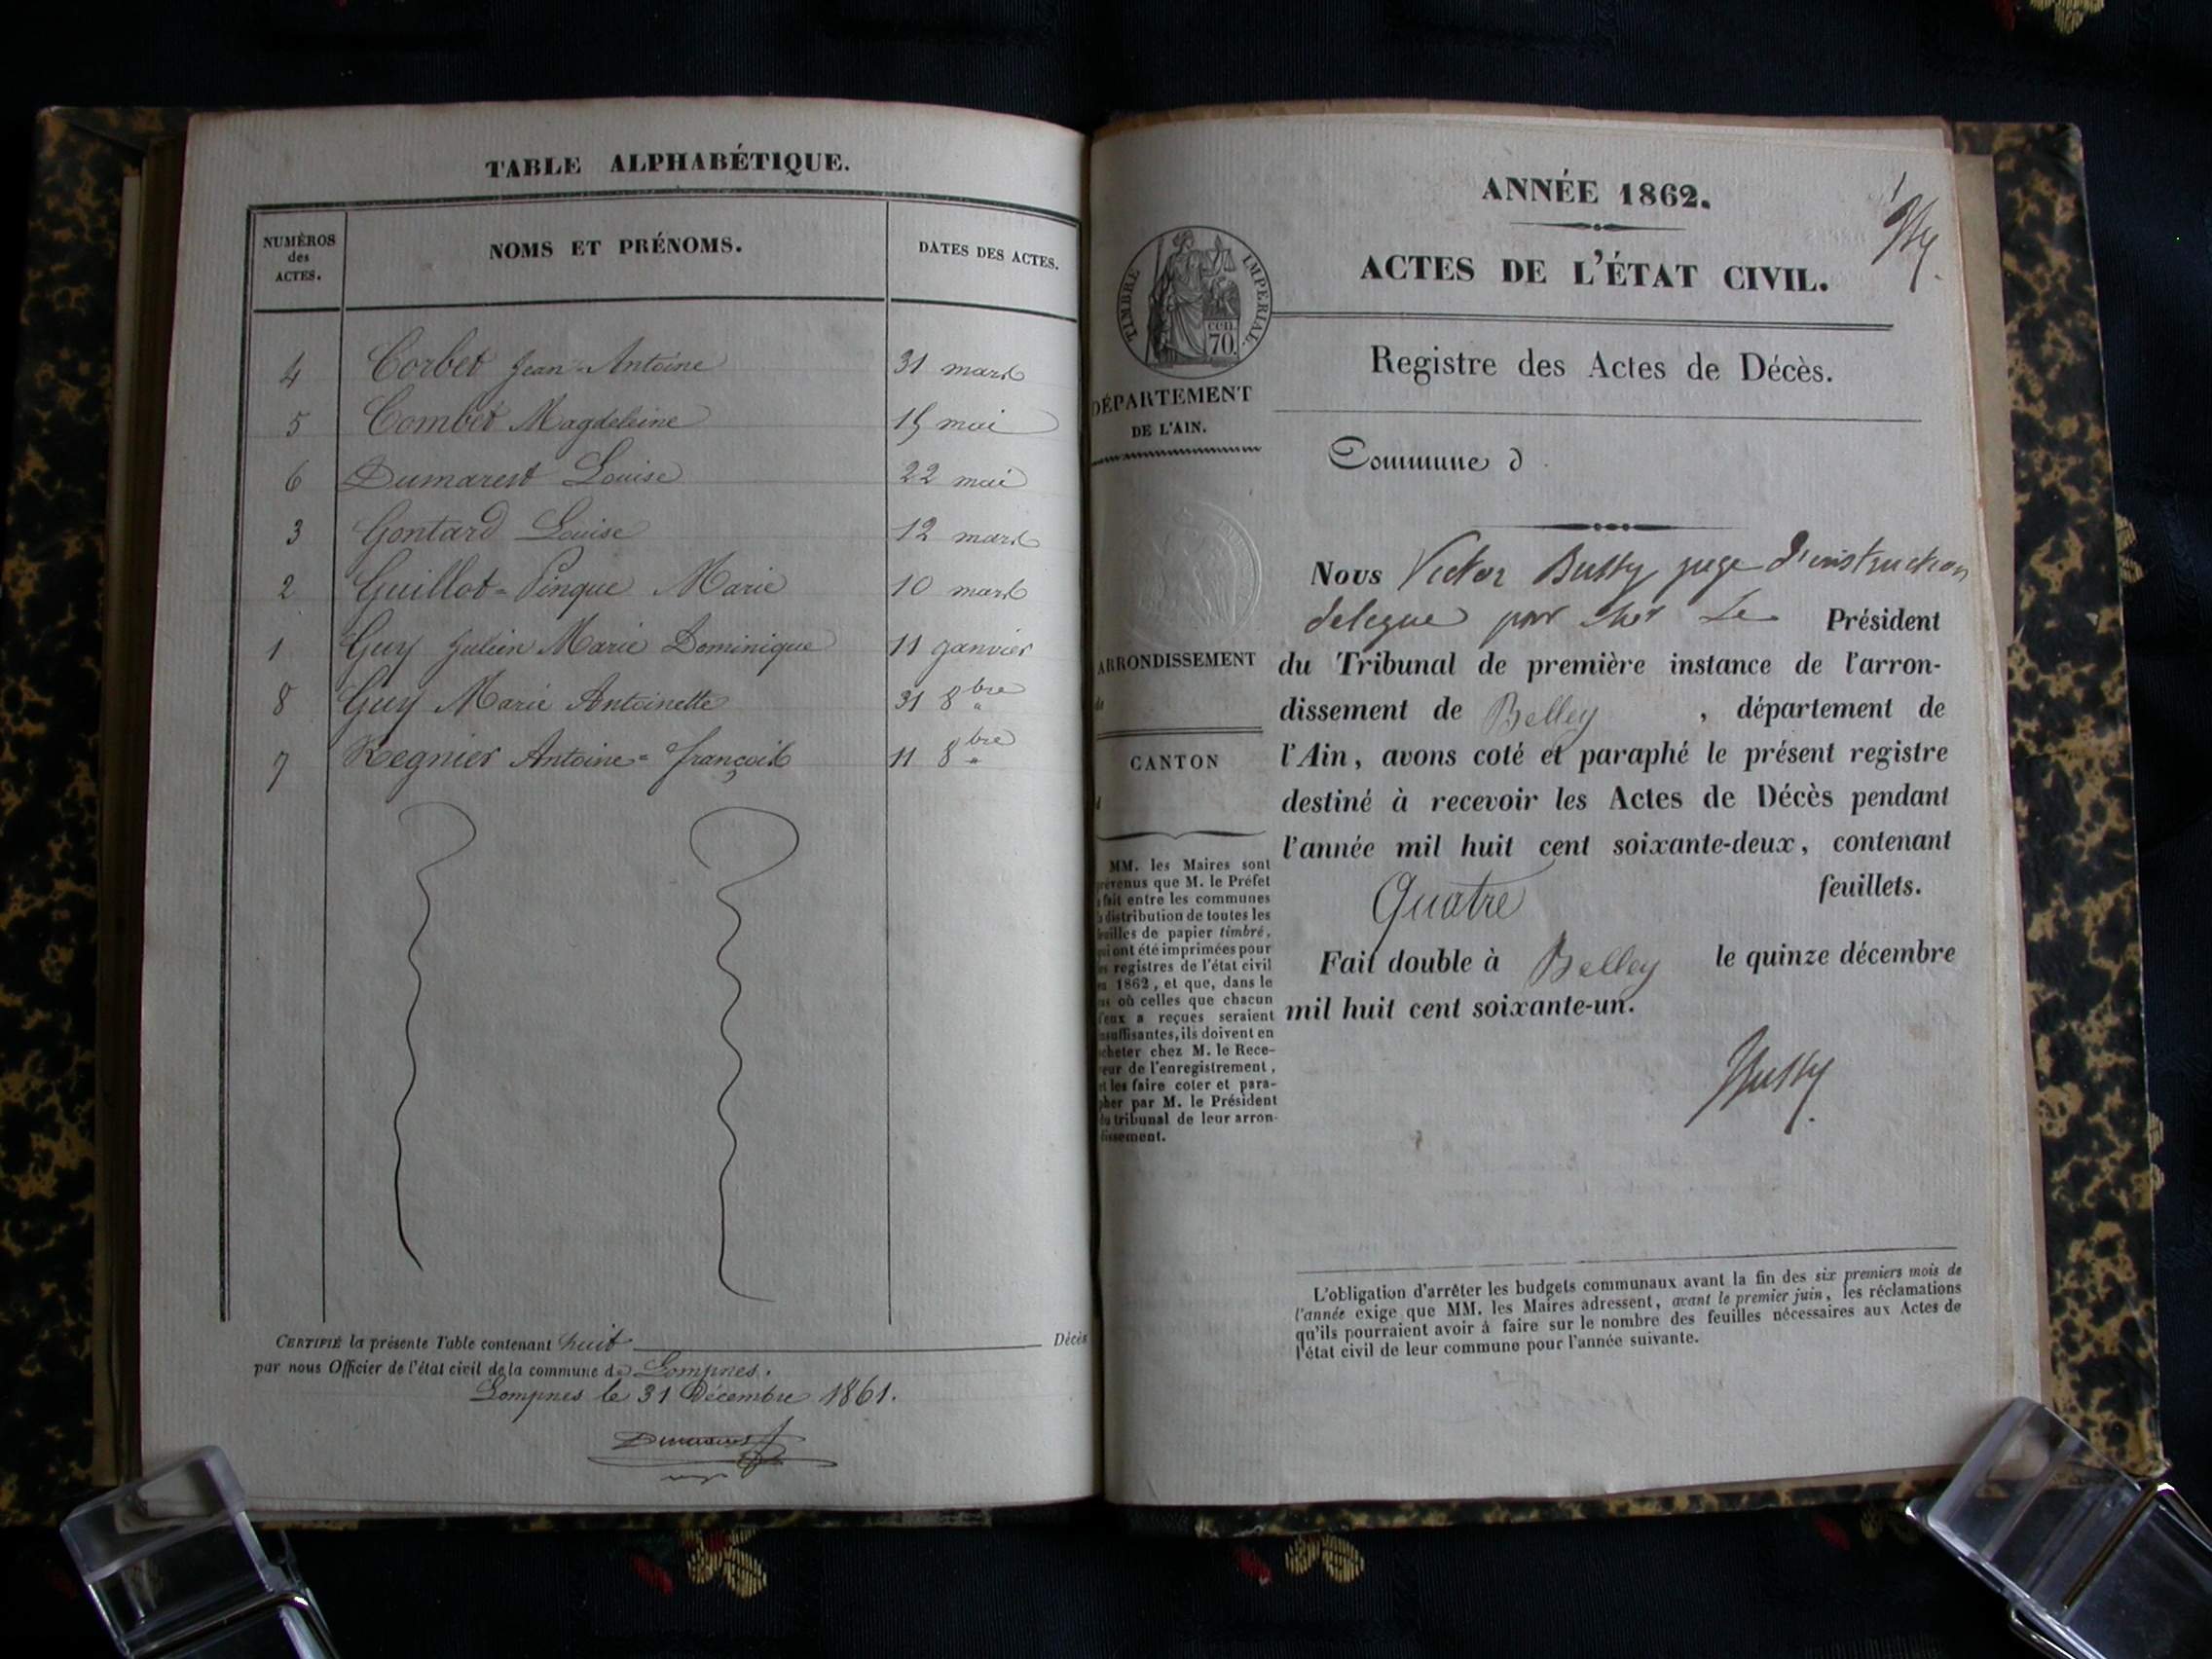 TABLE ALPHABÉTIQUE.
NUMÉROS des ACTES.
NOMS ET PRÉNOMS.
DATES DES ACTES.
4 Corbet Jean-Antoine 31 mars
5 Combet Magdeleine 15 mai
6 Dumarest Louise 22 mai
3 Gontard Louise 12 mars
2 Guillot=Pinque Marie 10 mars
1 Guy Julien Marie Dominique 11 janvier
8 Guy Marie Antoinette 31 8bre
7 Regnier Antoine=françois 11 8bre
CERTIFIÉ la présente Table contenant huit Décès
par nous Officier de l'état civil de la commune de Lompnes.
Lompnes le 31 Décembre 1861.
Dumarest
ANNÉE 1862.
ACTES DE L'ÉTAT CIVIL.
TIMBRE IMPERIAL.
cen. 70.
Registre des Actes de Décès.
DÉPARTEMENT
DE L'AIN.
Commune d
Nous Victor Bussy juge d'instruction
delegue par Le Président
ARRONDISSEMENT
de
du Tribunal de première instance de l'arron-
dissement de Belley, département de
CANTON
d
l'Ain, avons coté et paraphé le présent registre
destiné à recevoir les Actes de Décès pendant
l'année mil huit cent soixante-deux, contenant
Quatre feuillets.
Fait double à Belley le quinze décembre
mil huit cent soixante-un.
Bussy
MM. les Maires sont
prévenus que M. le Préfet
a fait entre les communes
la distribution de toutes les
feuilles de papier timbré,
qui ont été imprimées pour
les registres de l'état civil
en 1862, et que, dans le
cas où celles que chacun
d'eux a reçues seraient
insuffisantes, ils doivent en
acheter chez M. le Rece-
veur de l'enregistrement,
et les faire coter et para-
pher par M. le Président
du tribunal de leur arron-
dissement.
L'obligation d'arrêter les budgets communaux avant la fin des six premiers mois de
l'année exige que MM. les Maires adressent, avant le premier juin, les réclamations
qu'ils pourraient avoir à faire sur le nombre des feuilles nécessaires aux Actes de
l'état civil de leur commune pour l'année suivante.